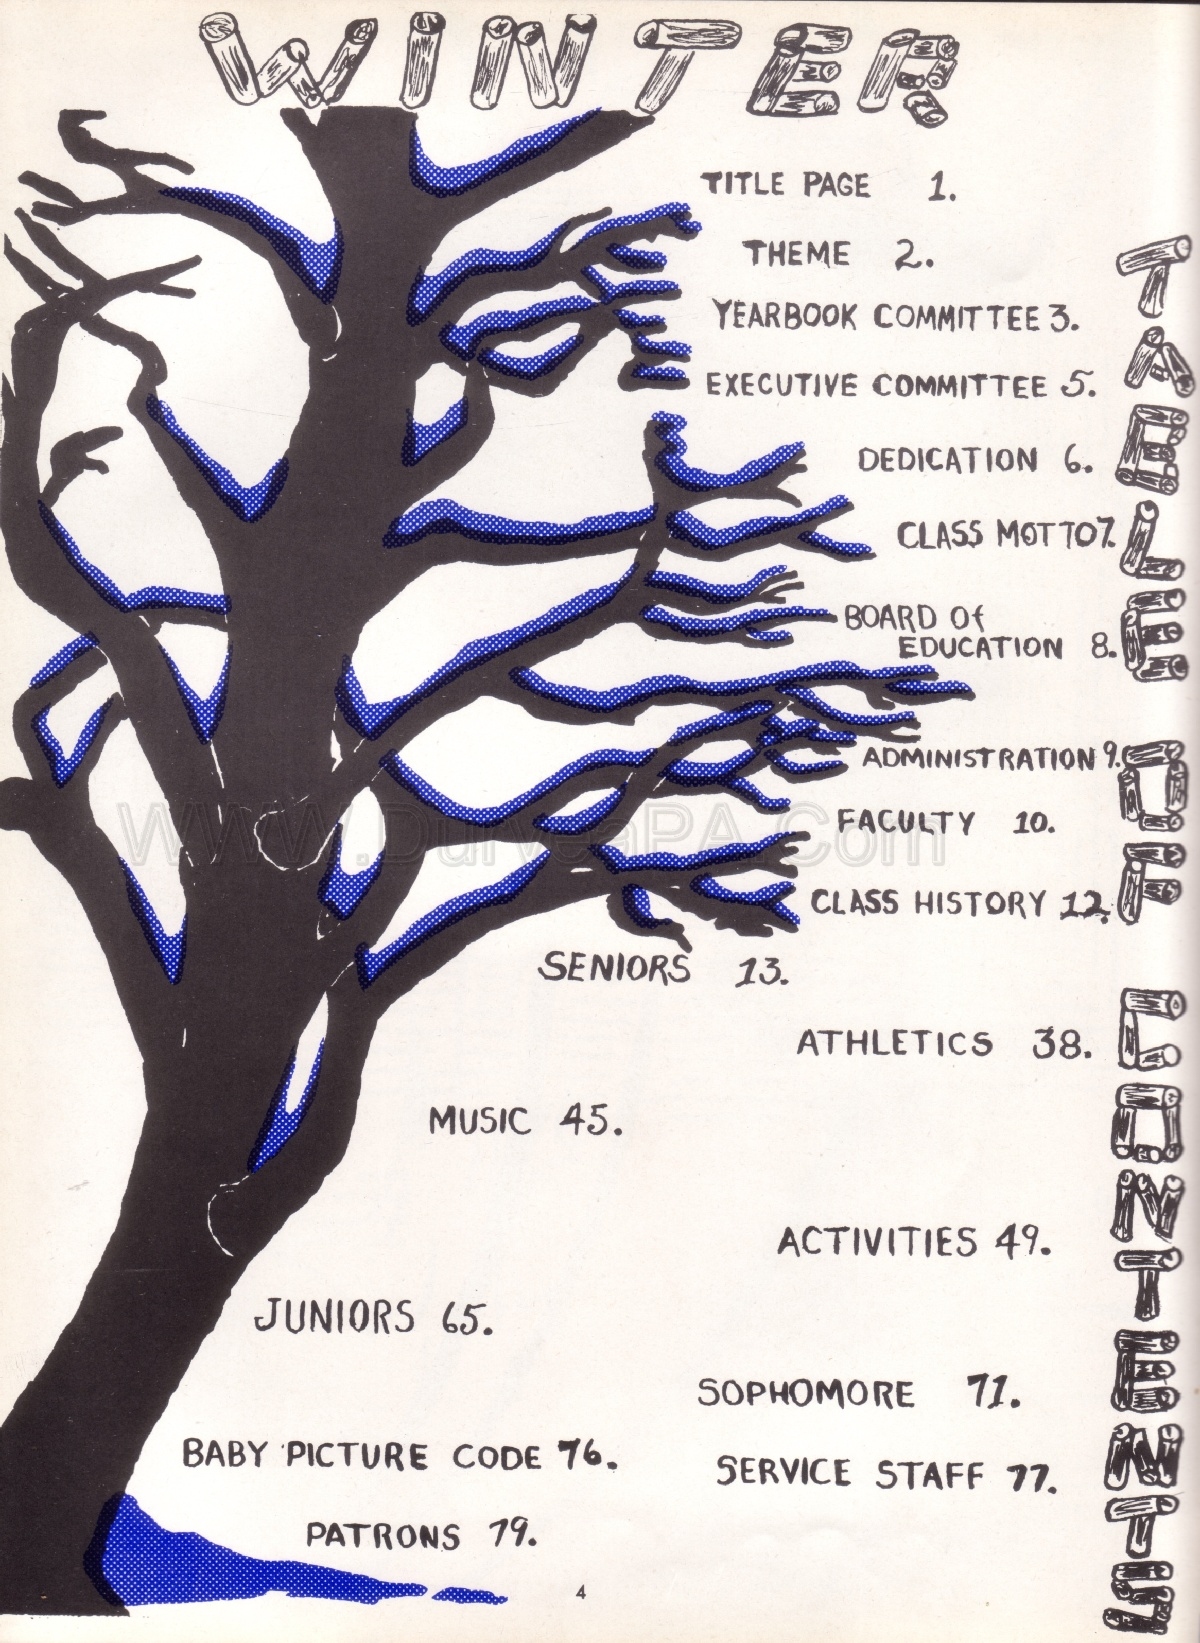 WINTER
TABLE OF CONTENTS
TITLE PAGE 1.
THEME 2.
YEARBOOK COMMITTEE 3.
EXECUTIVE COMMITTEE 5.
DEDICATION 6.
CLASS MOTTO 7.
BOARD Of
EDUCATION 8.
ADMINISTRATION 9.
FACULTY 10.
WWW.DuryeaPA.Com
CLASS HISTORY 12.
SENIORS 13.
ATHLETICS 38.
MUSIC 45.
ACTIVITIES 49.
JUNIORS 65.
SOPHOMORE 71.
BABY PICTURE CODE 76.
SERVICE STAFF 77.
PATRONS 79.
4